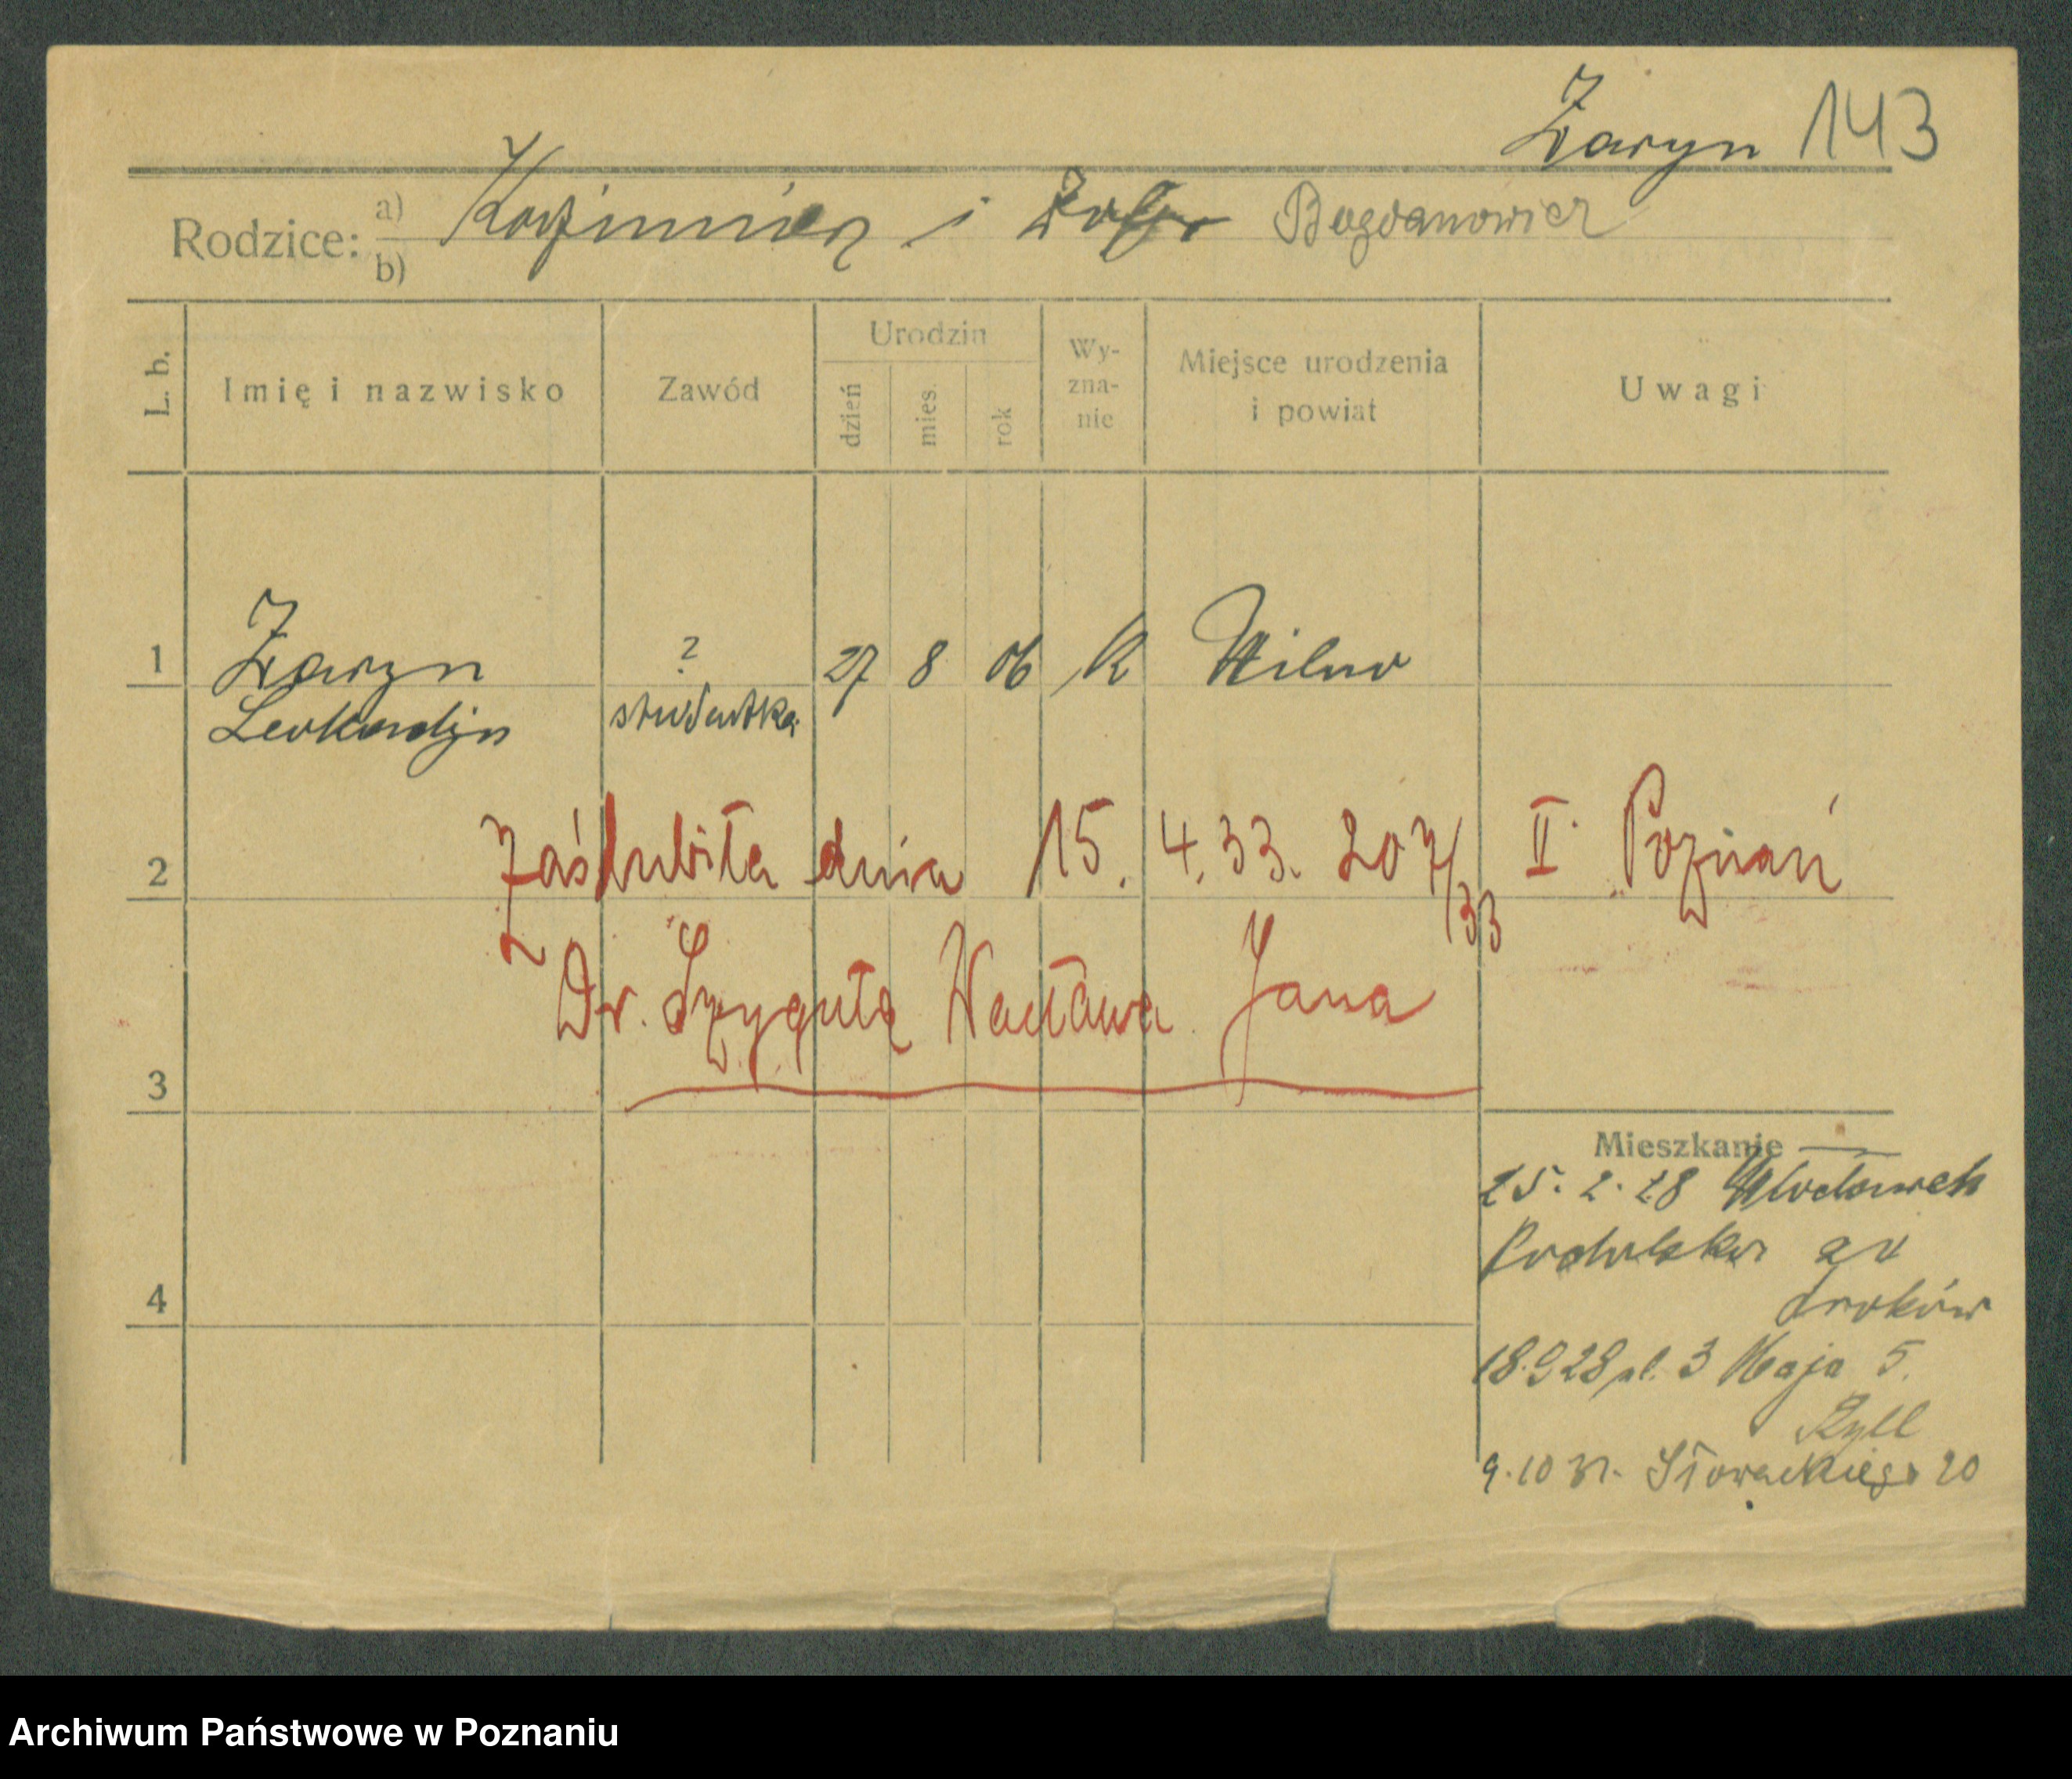 Żaryn 143
Rodzice: a) Kazimierz i Zofja Bogdanowicz
b)
L. b. Imię i nazwisko Zawód Urodzin dzień mies. rok Wy-zna-nie Miejsce urodzenia i powiat Uwagi
1 Żaryn ? 27 8 06 K Wilno
Leokardja studentka
2 zaślubiła dnia 15. 4. 33. 207/33 II. Poznań
z Dr. Szygułą Wacława Jana
3
Mieszkanie
25. 2. 28
4
18.9 28 pl. 3 Maja 5.
Ryll
9. 10 31. Słowackiego 20
Archiwum Państwowe w Poznaniu